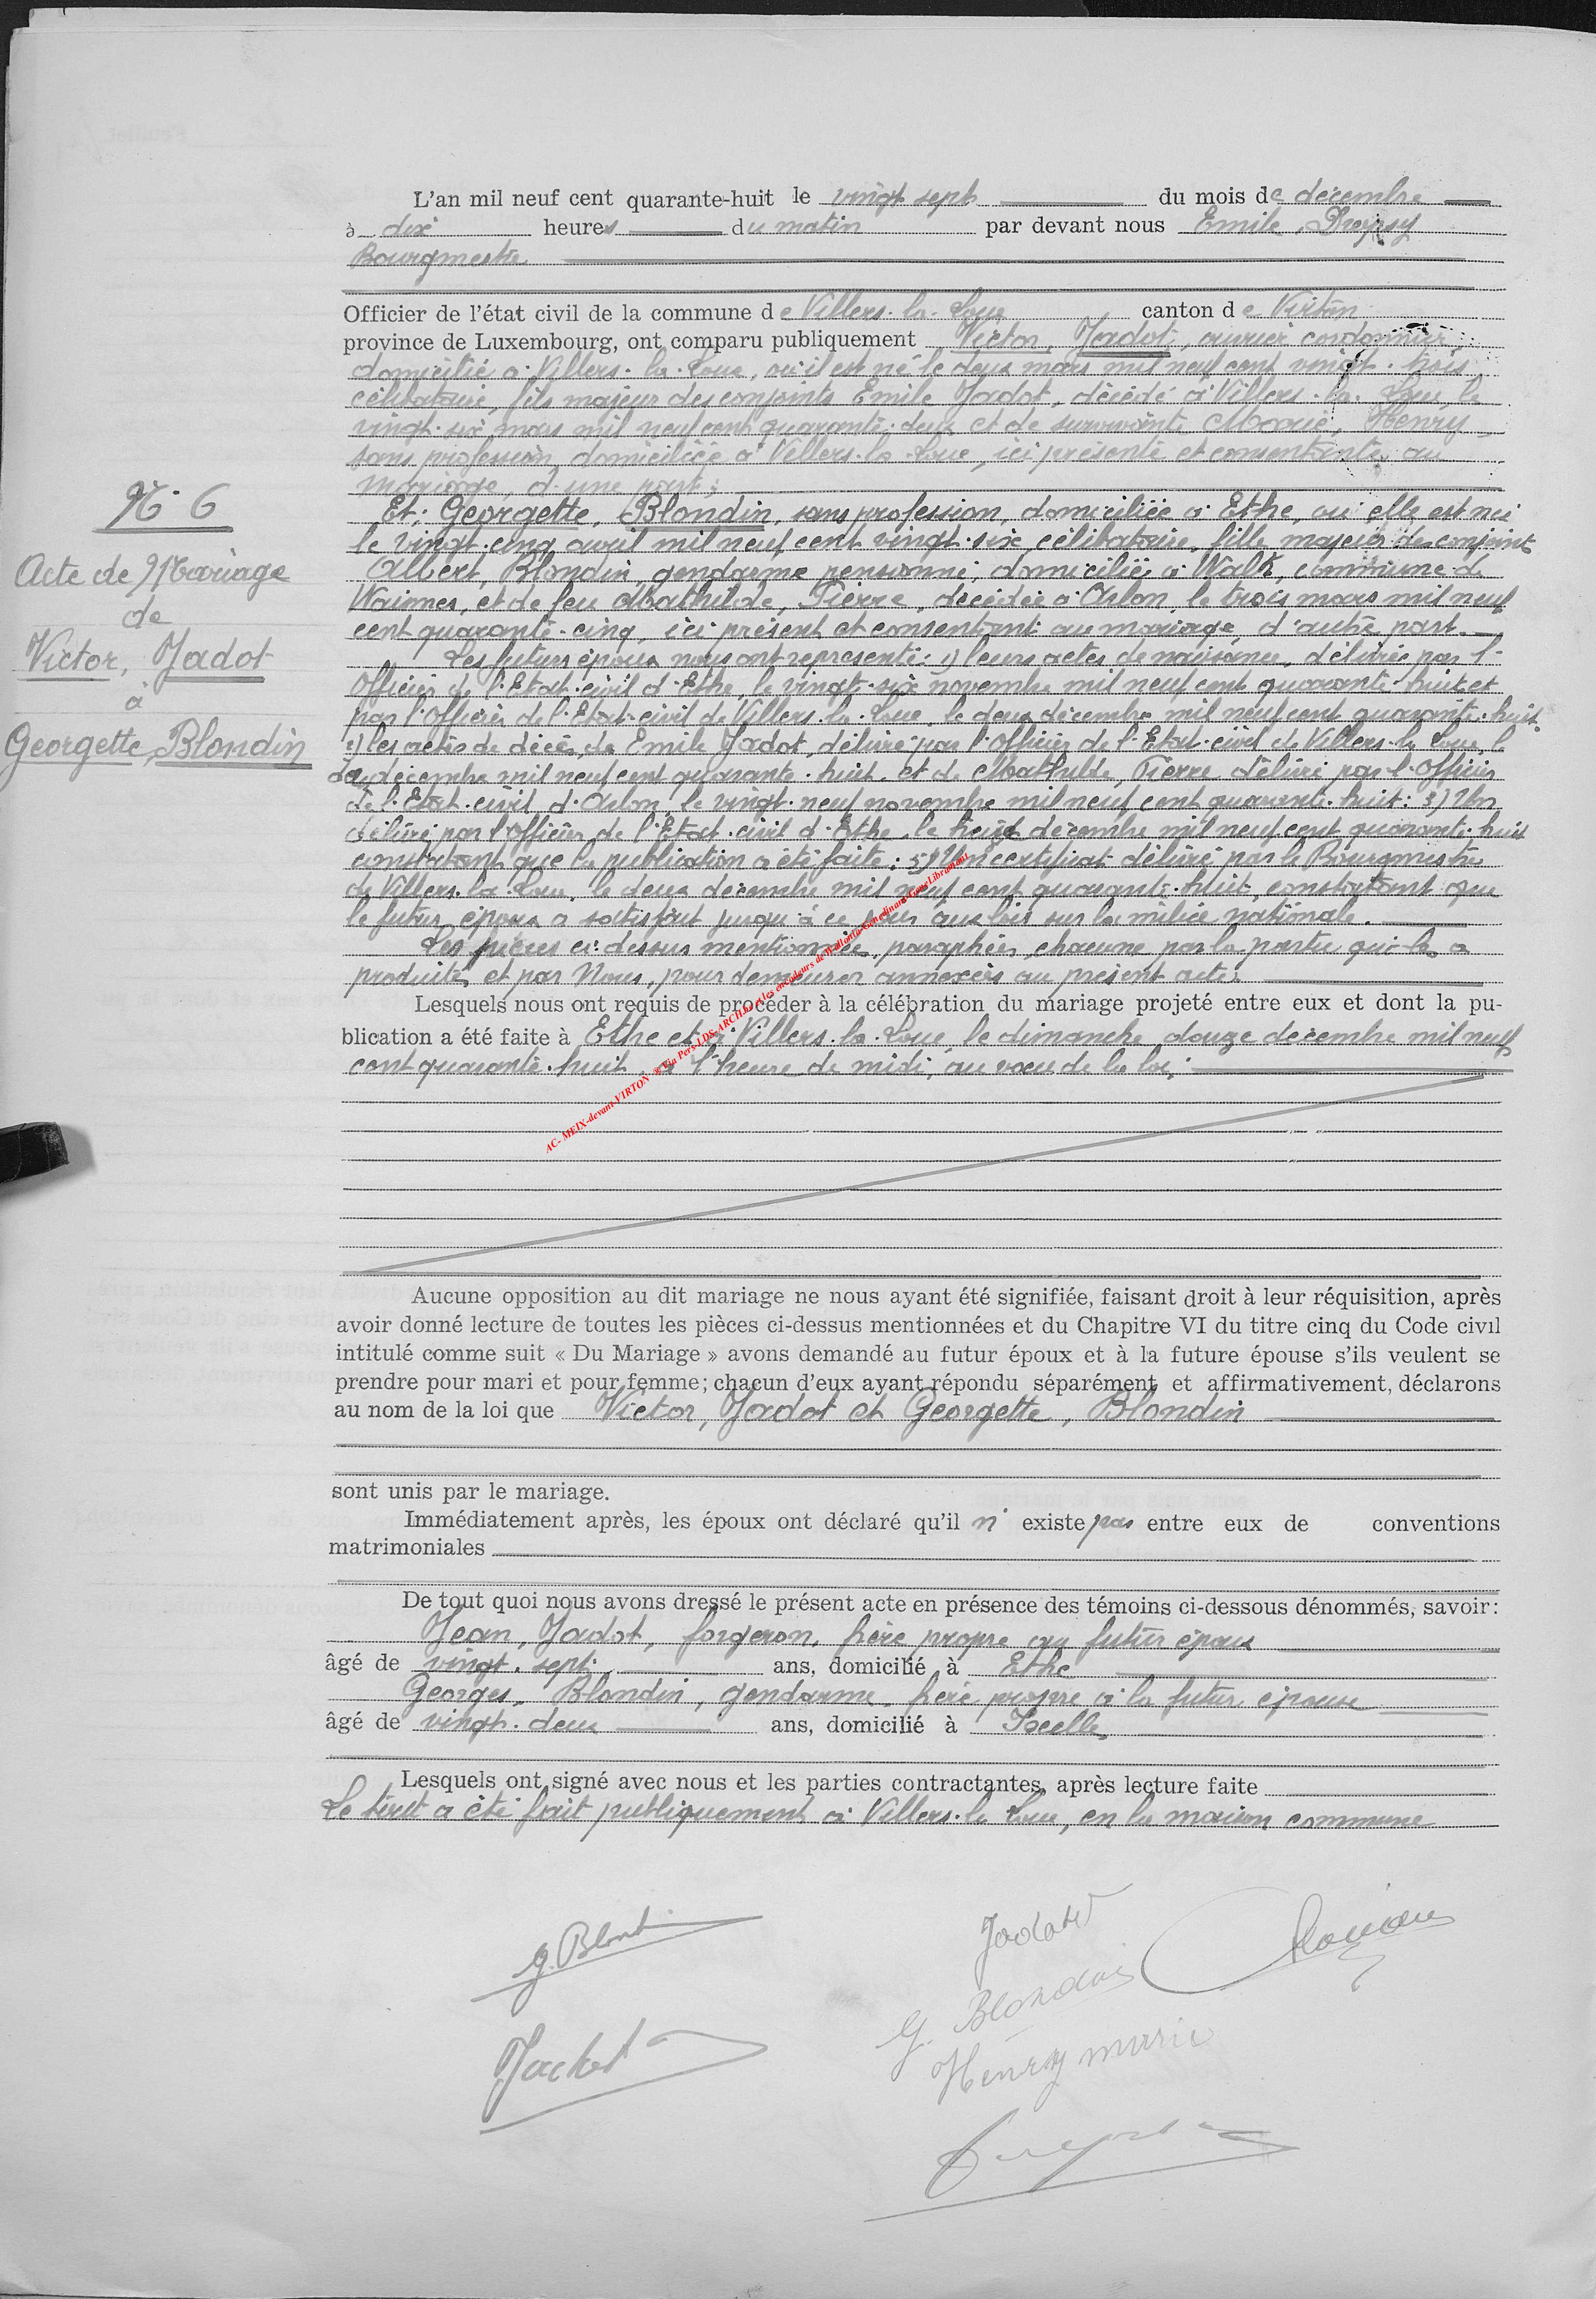 L'an mil neuf cent quarante-huit le vingt sept du mois de décembre
à dix heures du matin par devant nous Emile,
Bourgmestre
Officier de l'état civil de la commune de Villers-la-Loue canton de Virton
province de Luxembourg, ont comparu publiquement Victor, Jadot, ouvrier cordonnier,
domicilié à Villers-la-Loue, où il est né le deux mars mil neuf cent vingt-trois,
célibataire, fils majeur des conjoints Emile Jadot, décédé à Villers-la-Loue, le
vingt-six mars mil neuf cent quarante-deux et de survivante Marie, Henry,
sans profession, domiciliée à Villers-la-Loue, ici présente et consentante au
mariage, d'une part;
N° 6
Acte de Mariage
de
Victor, Jadot
à
Georgette, Blondin
Et: Georgette, Blondin, sans profession, domiciliée à Ethe, où elle est née
le vingt-cinq avril mil neuf cent vingt-six, célibataire, fille majeure des conjoints
Albert, Blondin, gendarme pensionné, domicilié à Walk, commune de
Waimes, et de feu Mathilde, Pierre, décédée à Arlon, le trois mars mil neuf
cent quarante-cinq, ici présent et consentant au mariage, d'autre part.
Les futurs époux nous ont représenté: 1) leurs actes de naissance, délivrés par l'
Officier de l'Etat-civil d'Ethe, le vingt-six novembre mil neuf cent quarante-huit et
par l'Officier de l'Etat-civil de Villers-la-Loue, le deux décembre mil neuf cent quarante-huit
2) les actes de décès de Emile Jadot, délivré par l'Officier de l'Etat-civil de Villers-la-Loue, le
deux décembre mil neuf cent quarante-huit et de Mathilde, Pierre délivré par l'Officier
de l'Etat-civil d'Arlon, le vingt-neuf novembre mil neuf cent quarante-huit: 3) Un
délivré par l'Officier de l'Etat-civil d'Ethe, le décembre mil neuf cent quarante-huit
constatant que la publication a été faite: 5) Un certificat délivré par le Bourgmestre
de Villers-la-Loue, le deux décembre mil neuf cent quarante-huit, constatant que
le futur époux a satisfait jusqu'à ce jour aux lois sur la milice nationale.
Les pièces ci-dessus mentionnées, paraphées, chacune par la partie qui les a
produites et par Nous, pour demeurer annexées au présent acte.
Lesquels nous ont requis de procéder à la célébration du mariage projeté entre eux et dont la pu-
blication a été faite à Ethe et à Villers-la-Loue, le dimanche douze décembre mil neuf
cent quarante-huit, à l'heure de midi, au voeu de la loi.
AC- MEIX-devant-VIRTON
Aucune opposition au dit mariage ne nous ayant été signifiée, faisant droit à leur réquisition, après
avoir donné lecture de toutes les pièces ci-dessus mentionnées et du Chapitre VI du titre cinq du Code civil
intitulé comme suit « Du Mariage » avons demandé au futur époux et à la future épouse s'ils veulent se
prendre pour mari et pour femme; chacun d'eux ayant répondu séparément et affirmativement, déclarons
au nom de la loi que Victor, Jadot et Georgette, Blondin
sont unis par le mariage.
Immédiatement après, les époux ont déclaré qu'il n' existe pas entre eux de conventions
matrimoniales
De tout quoi nous avons dressé le présent acte en présence des témoins ci-dessous dénommés, savoir:
Jean, Jadot, forgeron, frère propre au futur époux
âgé de vingt-sept ans, domicilié à Ethe
Georges, Blondin, gendarme, frère propre à la futur épouse
âgé de vingt-deux ans, domicilié à Ixelles
Lesquels ont signé avec nous et les parties contractantes, après lecture faite
Le tout a été fait publiquement à Villers-la-Loue, en la maison commune
G. Blondin
G. Blondin
Henry Marie